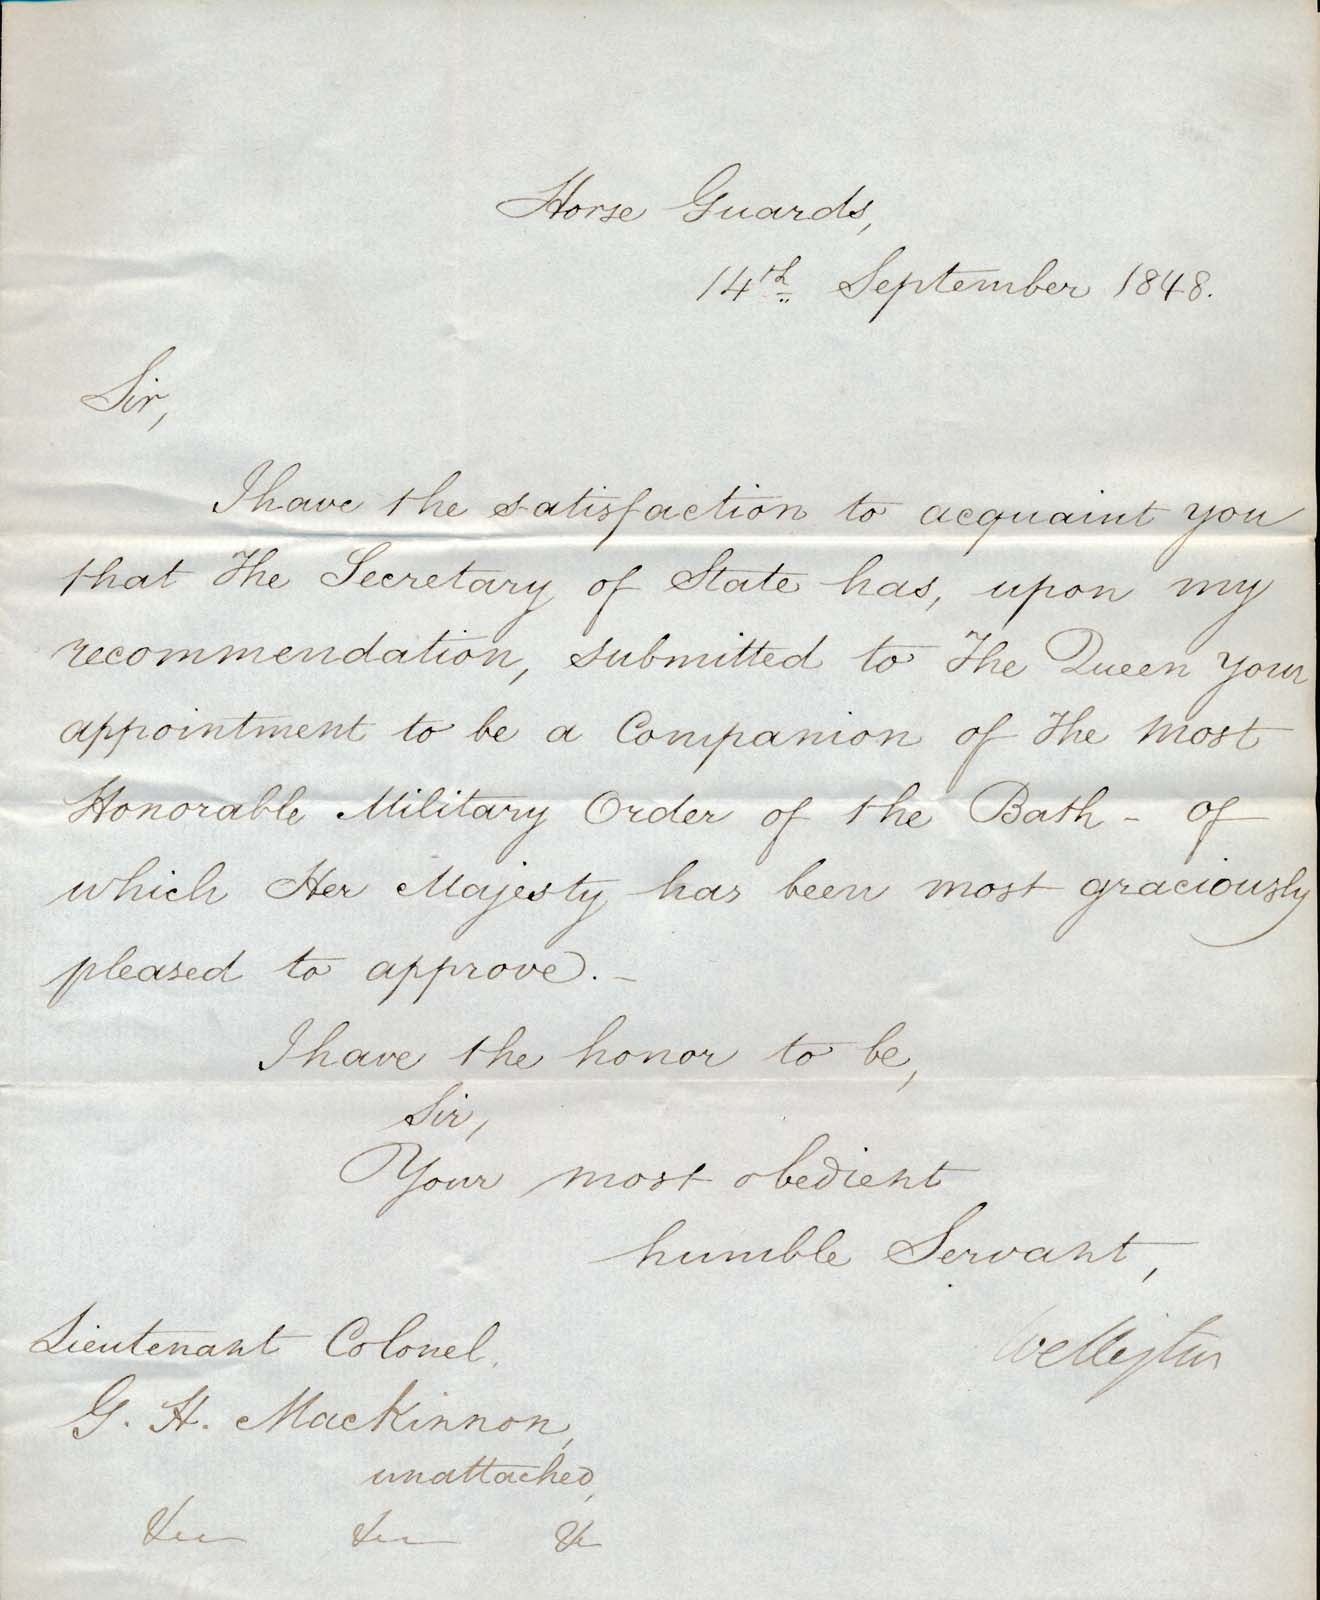 Horse Guards,
14th September 1848.
Sir,
I have the satisfaction to acquaint you
that The Secretary of State has, upon my
recommendation, submitted to The Queen your
appointment to be a Companion of The Most
Honorable Military Order of the Bath - of
which Her Majesty has been most graciously
pleased to approve. -
I have the honor to be,
Sir,
Your most obedient
humble Servant,
Wellington
Lieutenant Colonel
G. H. MacKinnon,
unattached,
&c &c &c